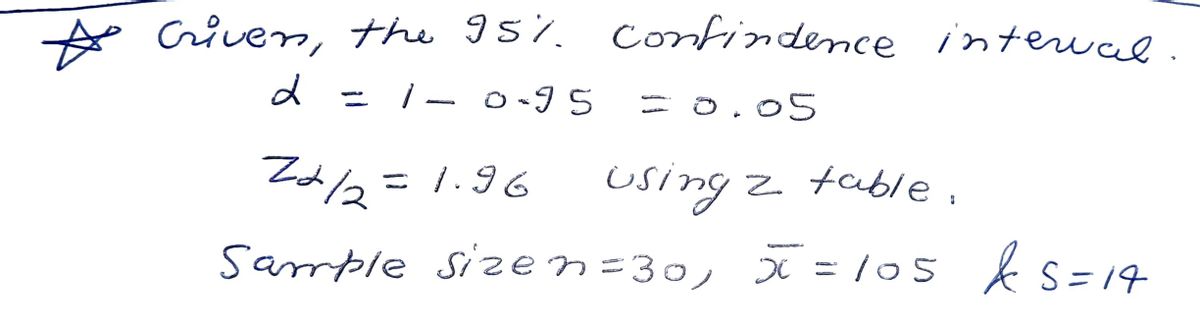 ☆ Given, the 95%. Confindence interval.
α = 1 - 0.95 = 0.05
Zα/2 = 1.96 using z table.
Sample size n=30, x̄ = 105 & S=14